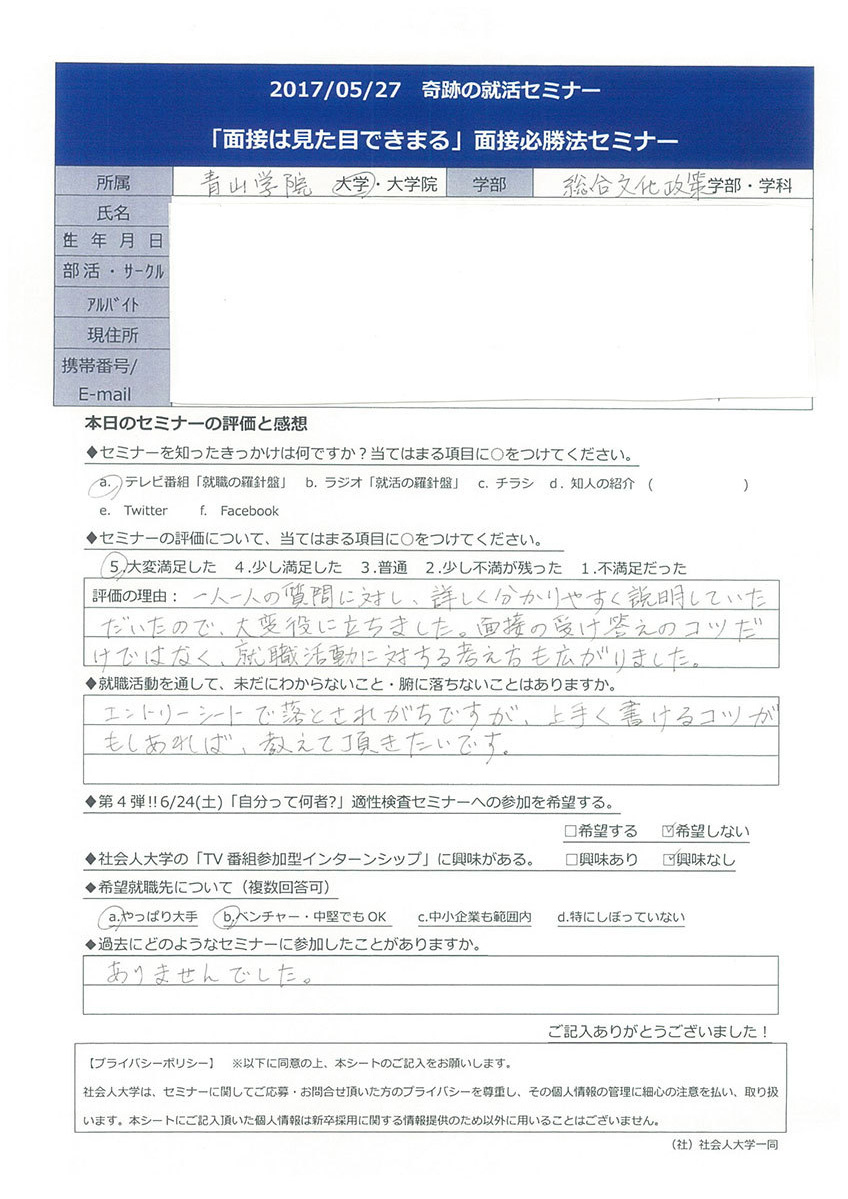 2017/05/27 奇跡の就活セミナー
「面接は見た目できまる」面接必勝法セミナー
所属 青山学院 大学・大学院 学部 総合文化政策学部・学科
氏名
生年月日
部活・サークル
アルバイト
現住所
携帯番号/
E-mail
本日のセミナーの評価と感想
◆セミナーを知ったきっかけは何ですか？当てはまる項目に○をつけてください。
a. テレビ番組「就職の羅針盤」 b. ラジオ「就活の羅針盤」 c. チラシ d. 知人の紹介 ( )
e. Twitter f. Facebook
◆セミナーの評価について、当てはまる項目に○をつけてください。
5.大変満足した 4.少し満足した 3.普通 2.少し不満が残った 1.不満足だった
評価の理由：一人一人の質問に対し、詳しく分かりやすく説明していた
だいたので、大変役に立ちました。面接の受け答えのコツだ
けではなく、就職活動に対する考え方も広がりました。
◆就職活動を通して、未だにわからないこと・腑に落ちないことはありますか。
エントリーシートで落とされがちですが、上手く書けるコツが
もしあれば、教えて頂きたいです。
◆第４弾!!6/24(土)「自分って何者?」適性検査セミナーへの参加を希望する。
□希望する ☑希望しない
◆社会人大学の「TV番組参加型インターンシップ」に興味がある。 □興味あり ☑興味なし
◆希望就職先について（複数回答可）
a.やっぱり大手 b.ベンチャー・中堅でもOK c.中小企業も範囲内 d.特にしぼっていない
◆過去にどのようなセミナーに参加したことがありますか。
ありませんでした。
ご記入ありがとうございました！
【プライバシーポリシー】 ※以下に同意の上、本シートのご記入をお願いします。
社会人大学は、セミナーに関してご応募・お問合せ頂いた方のプライバシーを尊重し、その個人情報の管理に細心の注意を払い、取り扱
います。本シートにご記入頂いた個人情報は新卒採用に関する情報提供のため以外に用いることはございません。
（社）社会人大学一同